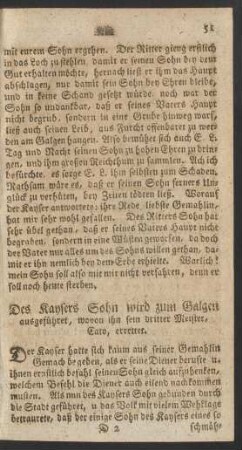 51
mit eurem Sohn ergehen. Der Ritter gieng erstlich
in das Loch zu stehlen, damit er seinen Sohn bey dem
Gut erhalten möchte, hernach ließ er ihm das Haupt
abschlagen, nur damit sein Sohn bey Ehren bleibe,
und nicht in seine Schand gesetzt würde. noch war der
Sohn so undankbar, daß er seines Vaters Haupt
nicht begrub, sondern in eine Grube hinweg warf,
ließ auch seinen Leib, aus Furcht offenbarer zu wer-
den am Galgen hangen. Also bemühet sich auch E. L.
Tag und Nacht seinen Sohn zu hohen Ehren zu brin-
gen, und ihm großen Reichthum zu sammlen. Ach ich
befürchte, es sorge E. L. ihm selbsten zum Schaden,
Rathsam wäre es, daß er seinen Sohn fernern Un-
glück zu verhüten, bey Zeiten tödten ließ. Worauf
der Kayser antwortete: ihre Rede liebste Gemahlin,
hat mir sehr wohl gefallen. Des Ritters Sohn hat
sehr übel gethan, daß er seines Vaters Haupt nicht
begraben, sondern in eine Wüsten geworfen, da doch
der Vater nur alles um des Sohns willen gethan, da-
mit er ihn nemlich bey dem Erbe erhielte. Warlich!
mein Sohn soll also mit mir nicht verfahren, denn er
soll noch heute sterben.
Des Kaysers Sohn wird zum Galgen
ausgeführet, wovon ihn sein dritter Meister,
Cato, errettet.
Der Kayser hatte sich kaum aus seiner Gemahlin
Gemach begeben, als er seine Diener berufte u.
ihnen ernstlich befahl seinen Sohn gleich aufzuhenken,
welchem Befehl die Diener auch eilend nachkommen
musten. Als nun des Kaysers Sohn gebunden durch
die Stadt geführet, u das Volk mit vielem Wehklage
betraurete, daß der einige Sohn des Kaysers eines so
D 2 schmäh-